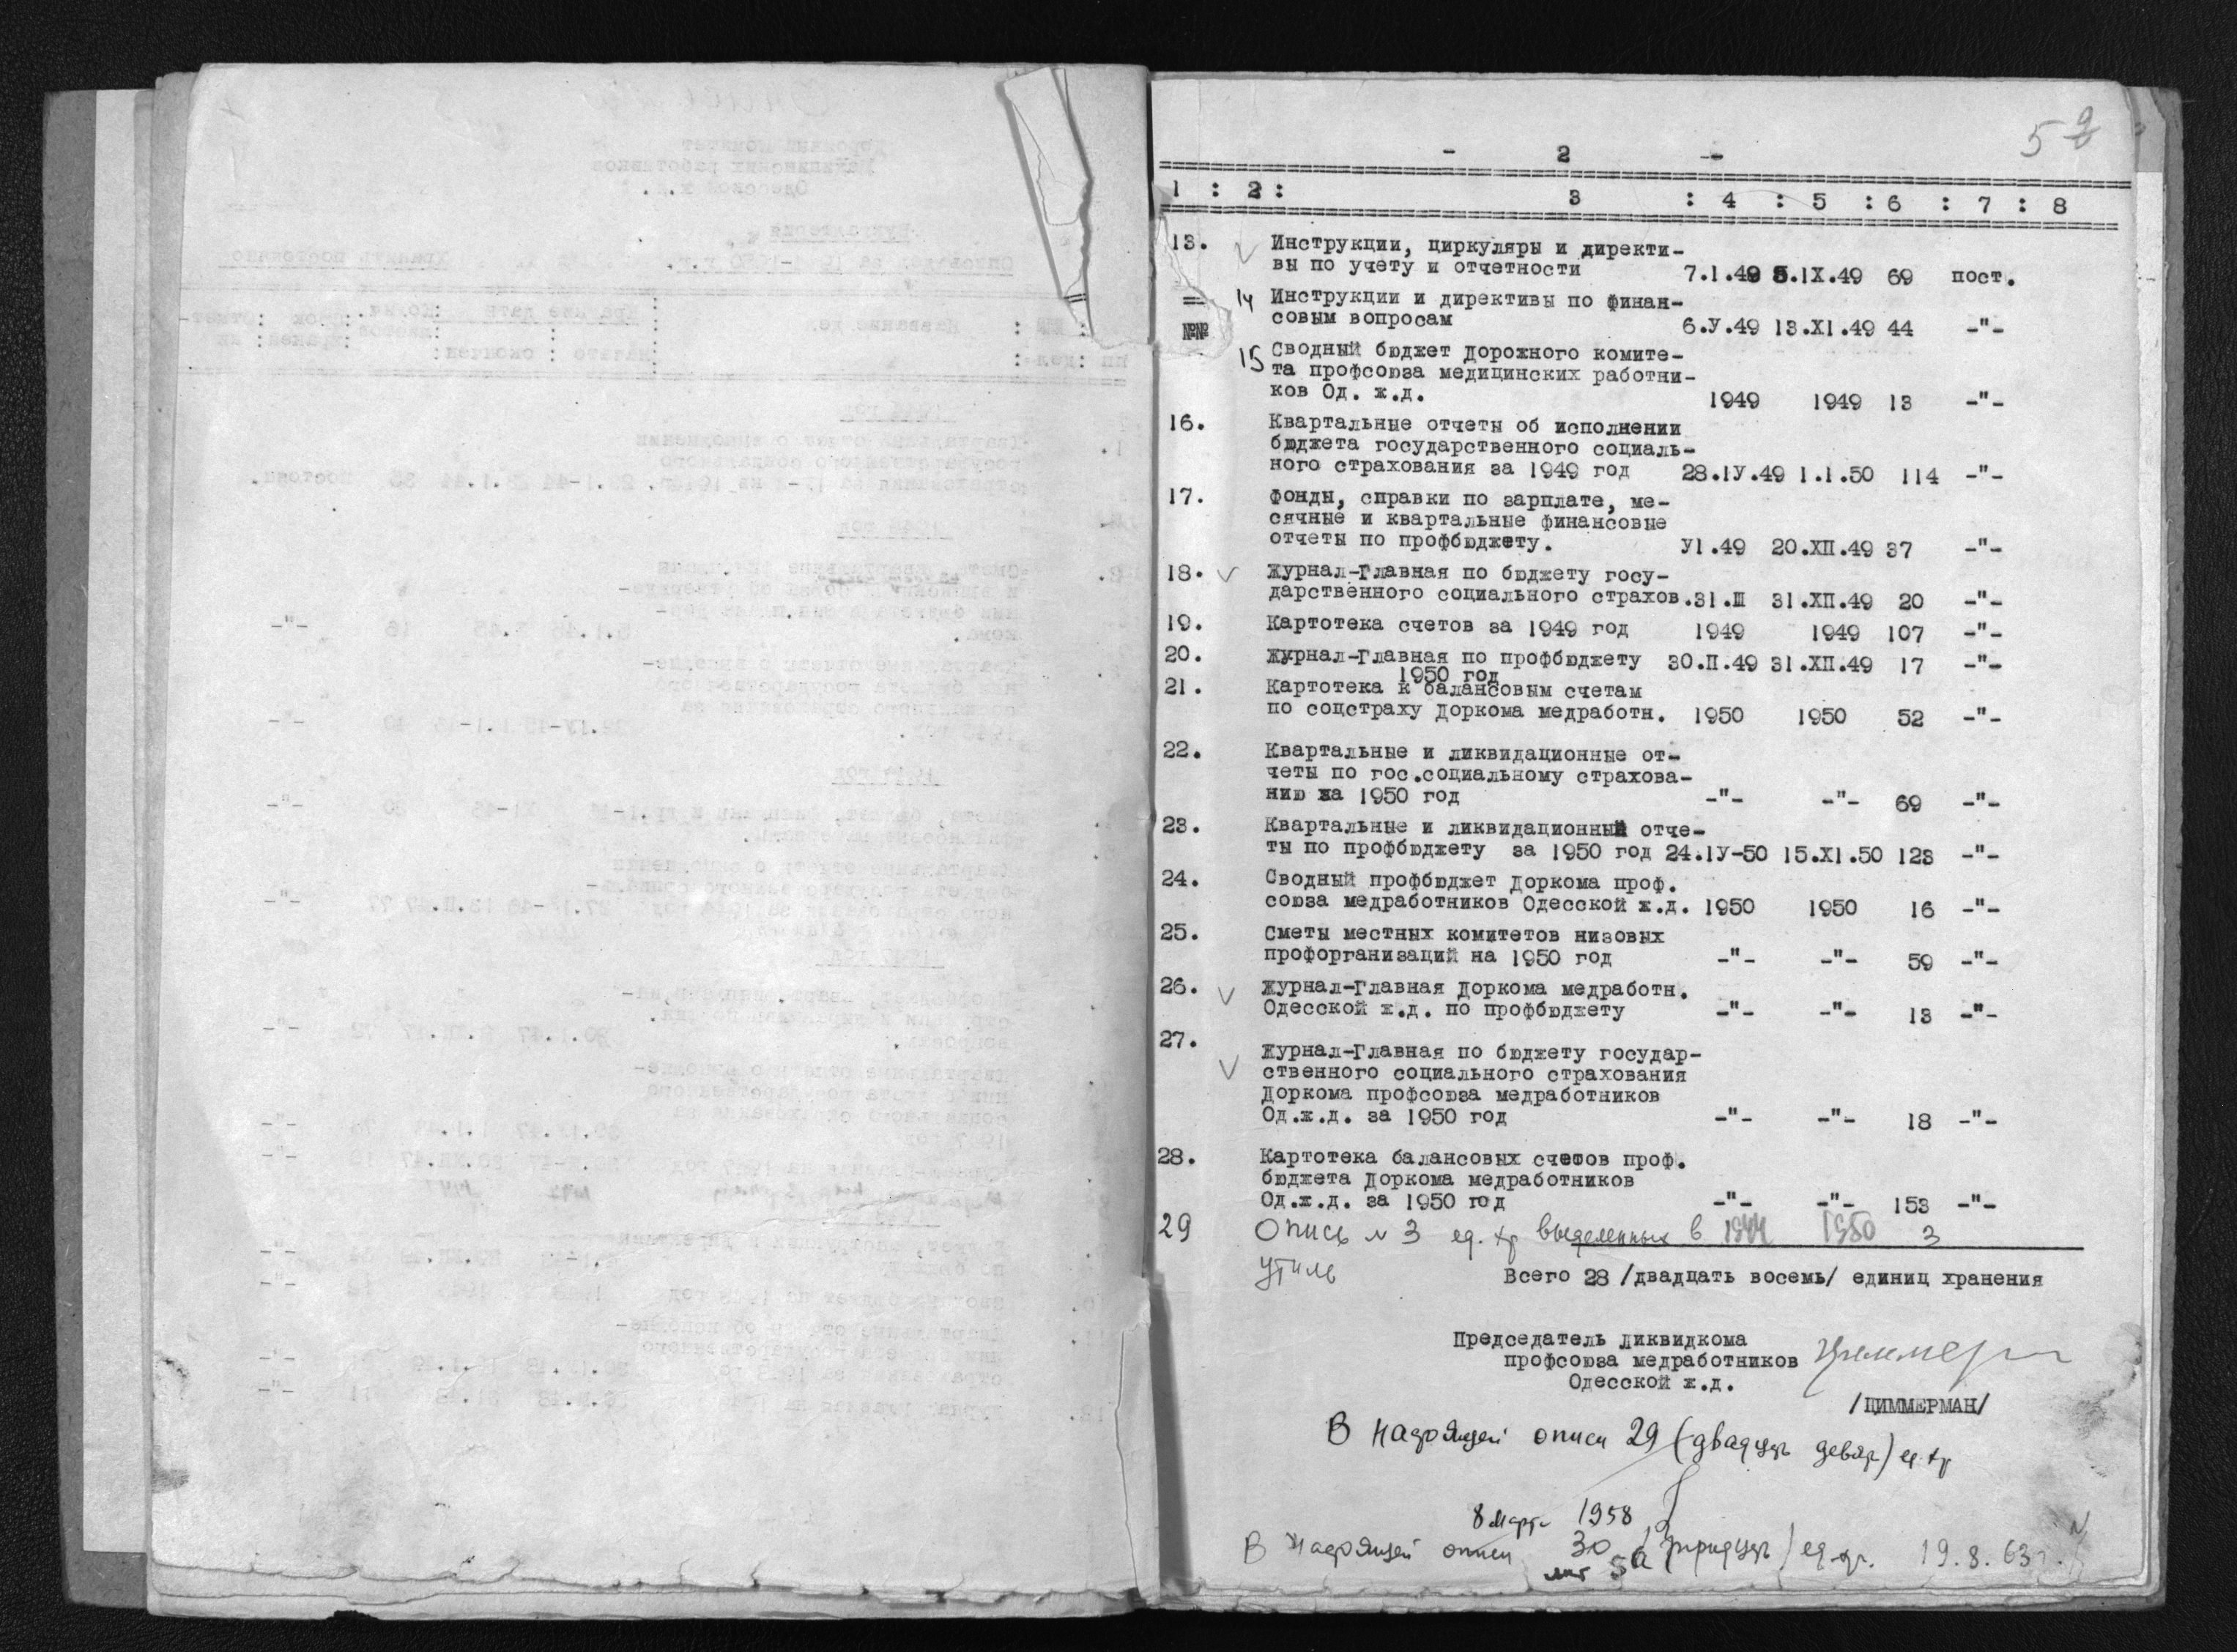 5 2
- 2 -
1 : 2: 3 : 4 : 5 : 6 : 7 : 8
13. Инструкции, циркуляры и директи-
вы по учету и отчетности 7.1.49 5.IX.49 69 пост.
14 Инструкции и директивы по финан-
совым вопросам 6.У.49 13.XI.49 44 -"-
№№
15 Сводный бюджет Дорожного комите-
та профсоюза медицинских работни-
ков Од. ж.д. 1949 1949 13 -"-
16. Квартальные отчеты об исполнении
бюджета государственного социаль-
ного страхования за 1949 год 28.1У.49 1.1.50 114 -"-
17. Фонды, справки по зарплате, ме-
сячные и квартальные финансовые
отчеты по профбюджету. У1.49 20.XП.49 37 -"-
18. Журнал-Главная по бюджету госу-
дарственного социального страхов. 31.Ш 31.XП.49 20 -"-
19. Картотека счетов за 1949 год 1949 1949 107 -"-
20. Журнал-Главная по профбюджету 30.П.49 31.XП.49 17 -"-
1950 год
21. Картотека к балансовым счетам
по соцстраху Доркома медработн. 1950 1950 52 -"-
22. Квартальные и ликвидационные от-
четы по гос.социальному страхова-
нию за 1950 год -"- -"- 69 -"-
23. Квартальные и ликвидационный отче-
ты по профбюджету за 1950 год 24.1У-50 15.X1.50 123 -"-
24. Сводный профбюджет Доркома проф.
союза медработников Одесской ж.д. 1950 1950 16 -"-
25. Сметы местных комитетов низовых
профорганизаций на 1950 год -"- -"- 59 -"-
26. Журнал-Главная Доркома медработн.
Одесской ж.д. по профбюджету -"- -"- 13 -"-
27. Журнал-Главная по бюджету государ-
ственного социального страхования
Доркома профсоюза медработников
Од.ж.д. за 1950 год -"- -"- 18 -"-
28. Картотека балансовых счетов проф.
бюджета Доркома медработников
Од.ж.д. за 1950 год -"- -"- 153 -"-
29 Опись № 3 ед. хр выделенных в 1944 1950 3
утиль
Всего 28 /двадцать восемь/ единиц хранения
Председатель Ликвидкома
профсоюза медработников
Одесской ж.д.
/ЦИММЕРМАН/
В настоящей описи 29 (двадцать девять) ед. хр
8 марта 1958
В настоящей описи 30 /тридцать/ ед. хр. 19.8.63г.
лит 5а